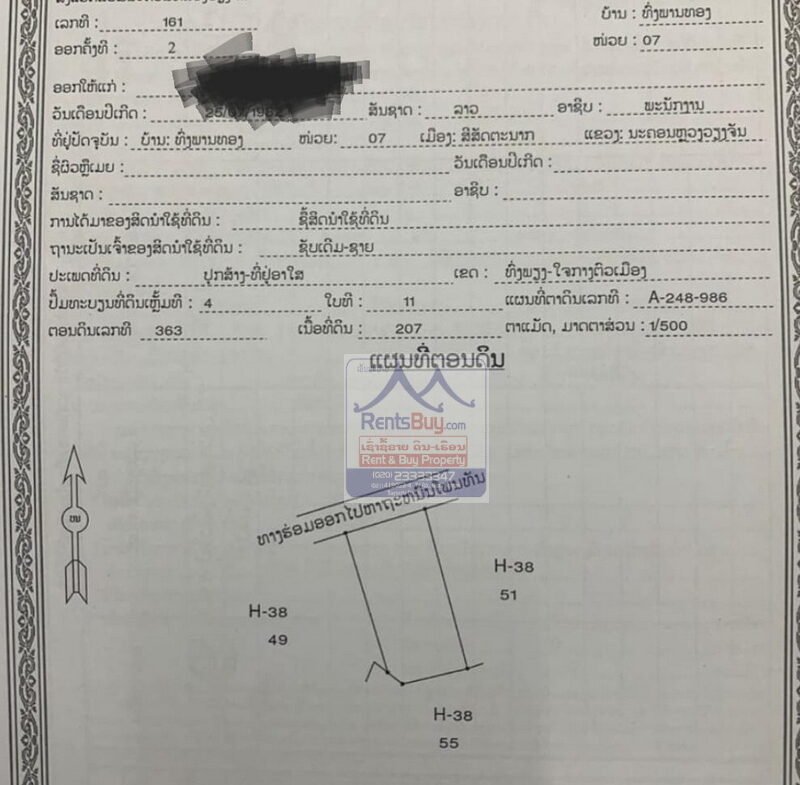 ເລກທີ : 161 ບ້ານ : ທົ່ງພານທອງ
ອອກຄັ້ງທີ : 2 ໜ່ວຍ : 07
ອອກໃຫ້ແກ່ :
ວັນເດືອນປີເກີດ : ສັນຊາດ : ລາວ ອາຊີບ : ພະນັກງານ
ທີ່ຢູ່ປັດຈຸບັນ : ບ້ານ: ທົ່ງພານທອງ ໜ່ວຍ: 07 ເມືອງ: ສີສັດຕະນາກ ແຂວງ: ນະຄອນຫຼວງວຽງຈັນ
ຊື່ຜົວຫຼືເມຍ : ວັນເດືອນປີເກີດ :
ສັນຊາດ : ອາຊີບ :
ການໄດ້ມາຂອງສິດນຳໃຊ້ທີ່ດິນ : ຊື້ສິດນຳໃຊ້ທີ່ດິນ
ຖານະເປັນເຈົ້າຂອງສິດນຳໃຊ້ທີ່ດິນ : ຊັບເດີມ-ຊາຍ
ປະເພດທີ່ດິນ : ປຸກສ້າງ-ທີ່ຢູ່ອາໃສ ເຂດ : ທົ່ງພຽງ-ໃຈກາງຕົວເມືອງ
ປຶ້ມທະບຽນທີ່ດິນເຫຼັ້ມທີ : 4 ໃບທີ : 11 ແຜນທີ່ຕາດິນເລກທີ : A-248-986
ຕອນດິນເລກທີ 363 ເນື້ອທີ່ດິນ : 207 ຕາແມັດ, ມາດຕາສ່ວນ : 1/500
ແຜນທີ່ຕອນດິນ
RentsBuy.com
ເຊົ່າຊື້ຂາຍ ດິນ-ເຮືອນ
Rent & Buy Property
(020) 23333347
ທາງຮ່ອມອອກໄປຫາຖະຫນົນໂພນທັນ
ໜ
H-38
51
H-38
49
H-38
55